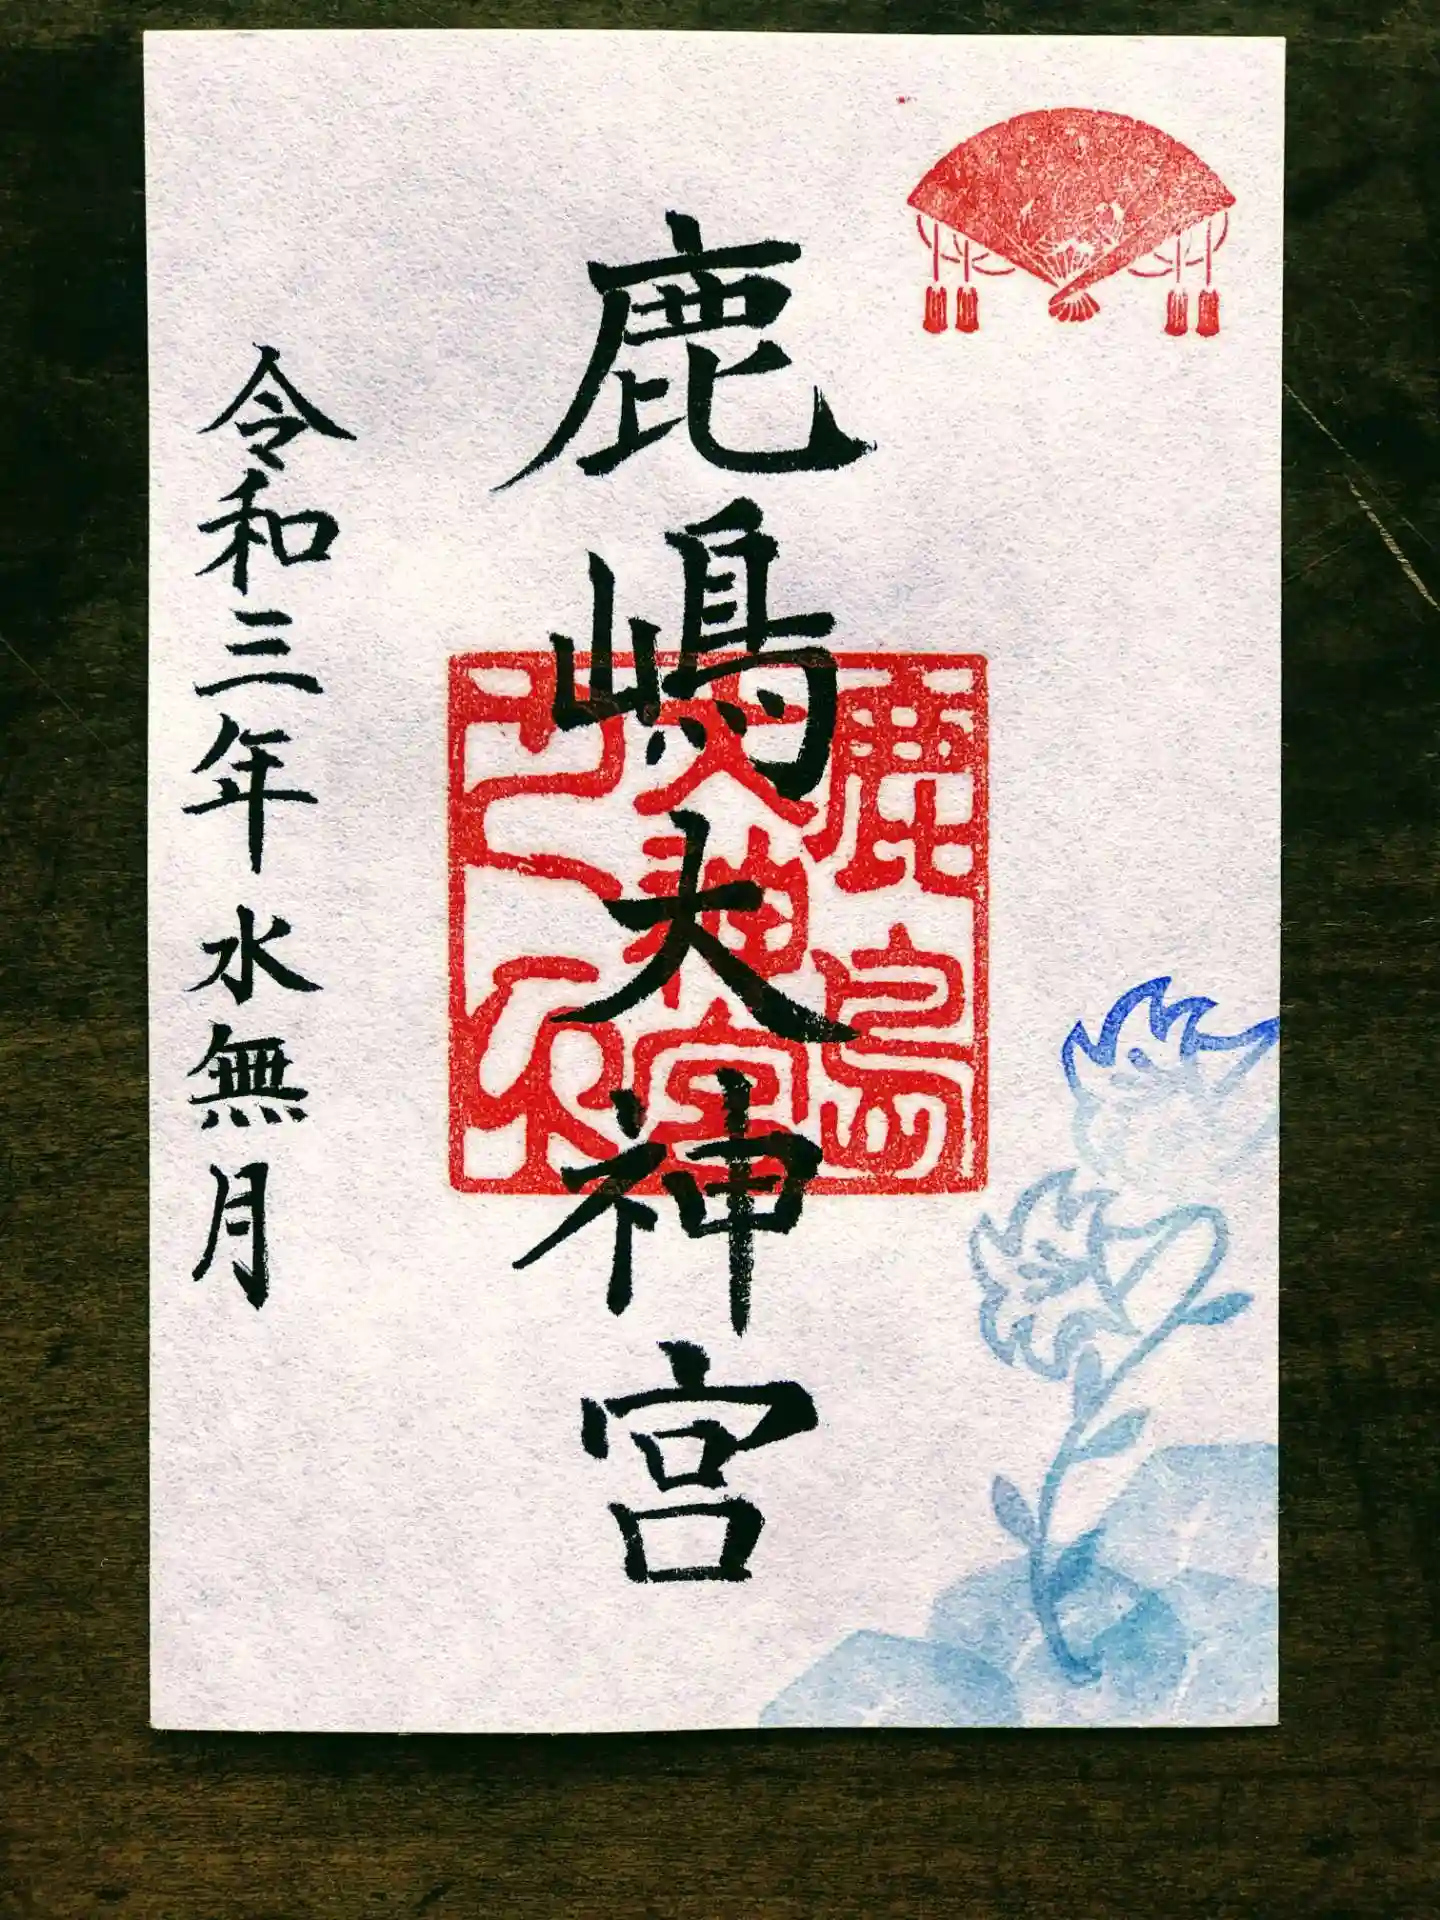 鹿嶋大神宮
鹿島
大神宮
令和三年 水無月